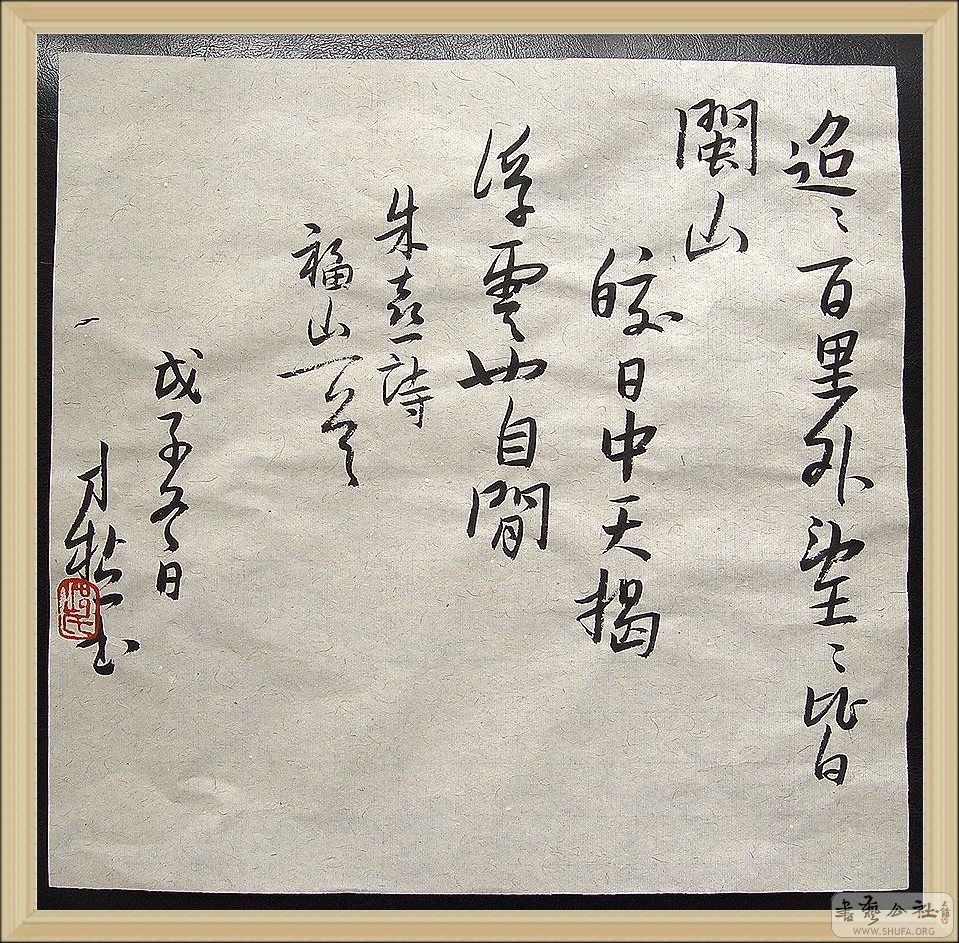 迢〻百里外望〻皆
閩山
皎日中天揭
浮雲也自閒
朱熹詩
福山一首
戊子冬日
书
書藝公社
WWW.SHUFA.ORG